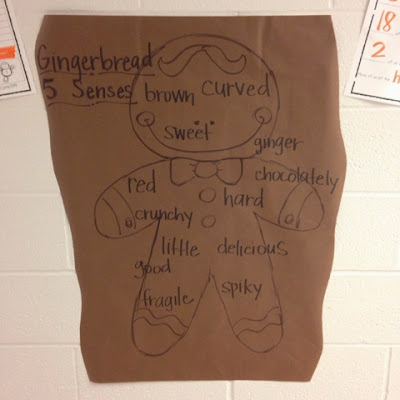 Gingerbread
5 Senses
brown curved
sweet
ginger
chocolately
red
hard
crunchy
little delicious
good
fragile spiky
18
2
h